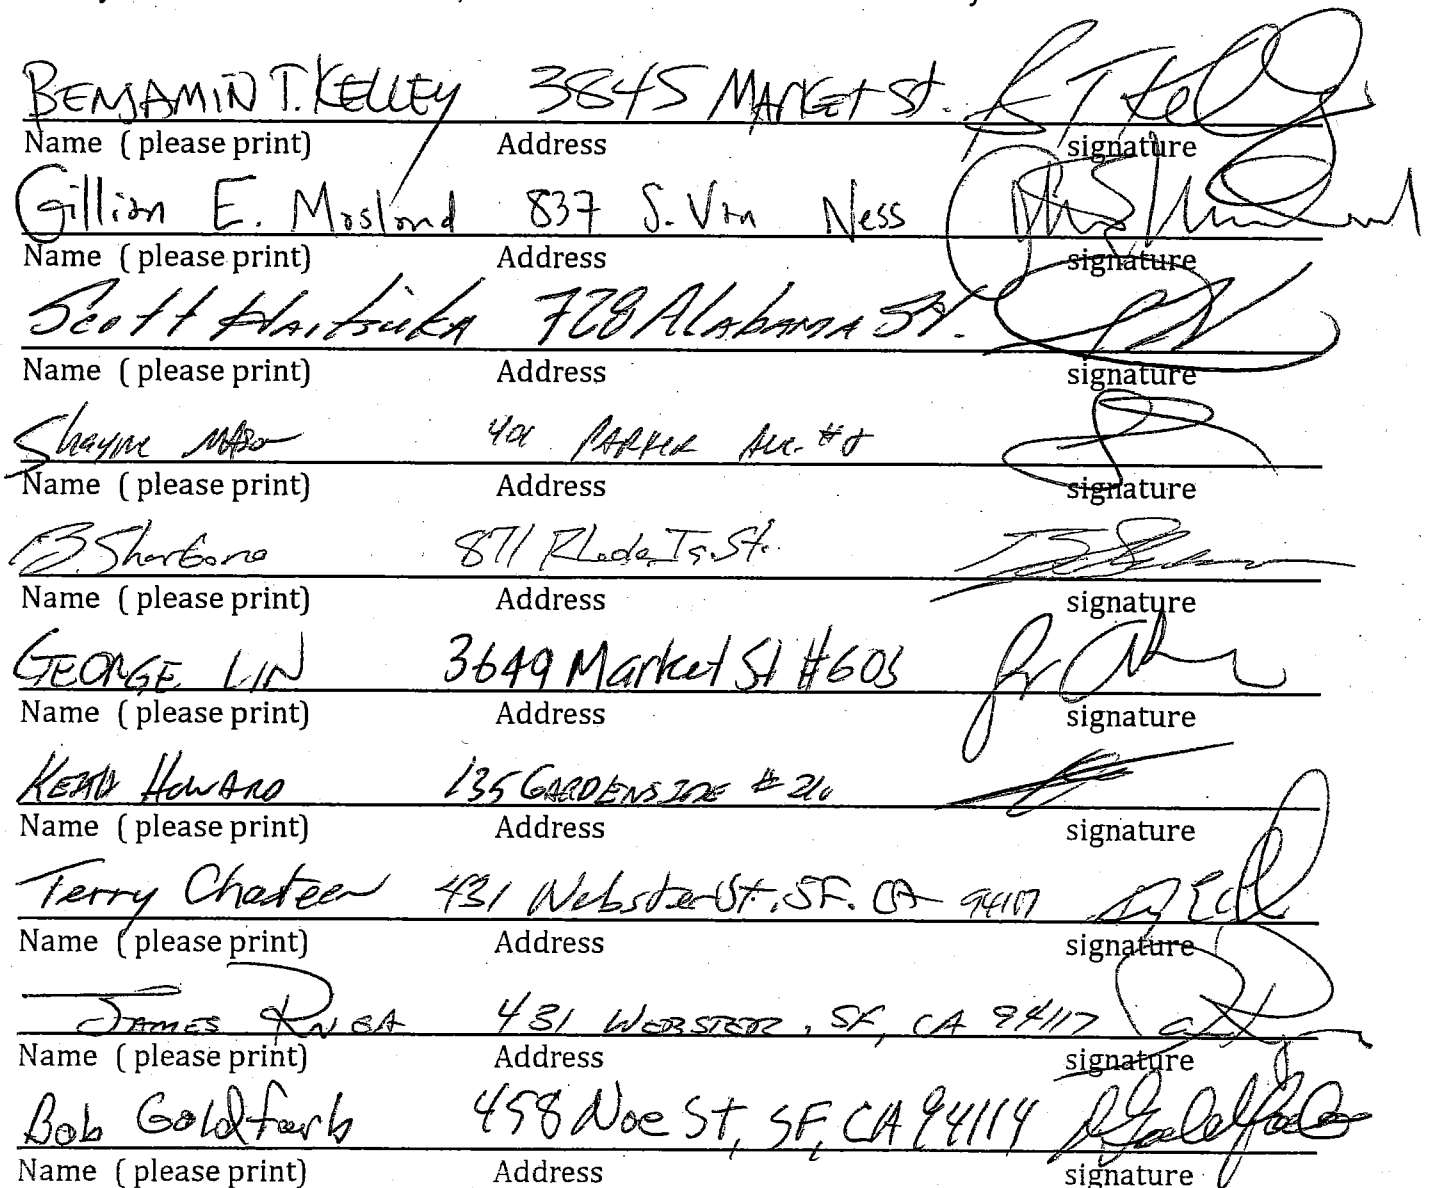 BENJAMIN T. KELLEY 3845 MARKET St.
Name ( please print) Address signature
Gillian E. Mosland 837 S. Van Ness
Name ( please print) Address signature
Scott Haitsuka 728 Alabama St.
Name ( please print) Address signature
Shayne 401 PARKER Ave. #8
Name ( please print) Address signature
B. Sharbono 871 Rhode Is. St.
Name ( please print) Address signature
GEORGE LIN 3649 Market St #603
Name ( please print) Address signature
KEITH HOWARD 135 GARDENSIDE #
Name ( please print) Address signature
Terry Chasteen 431 Webster St, SF. CA 94117
Name ( please print) Address signature
JAMES 431 WEBSTER, SF, CA 94117
Name ( please print) Address signature
Bob Goldfarb 458 Noe St, SF, CA 94114
Name ( please print) Address signature